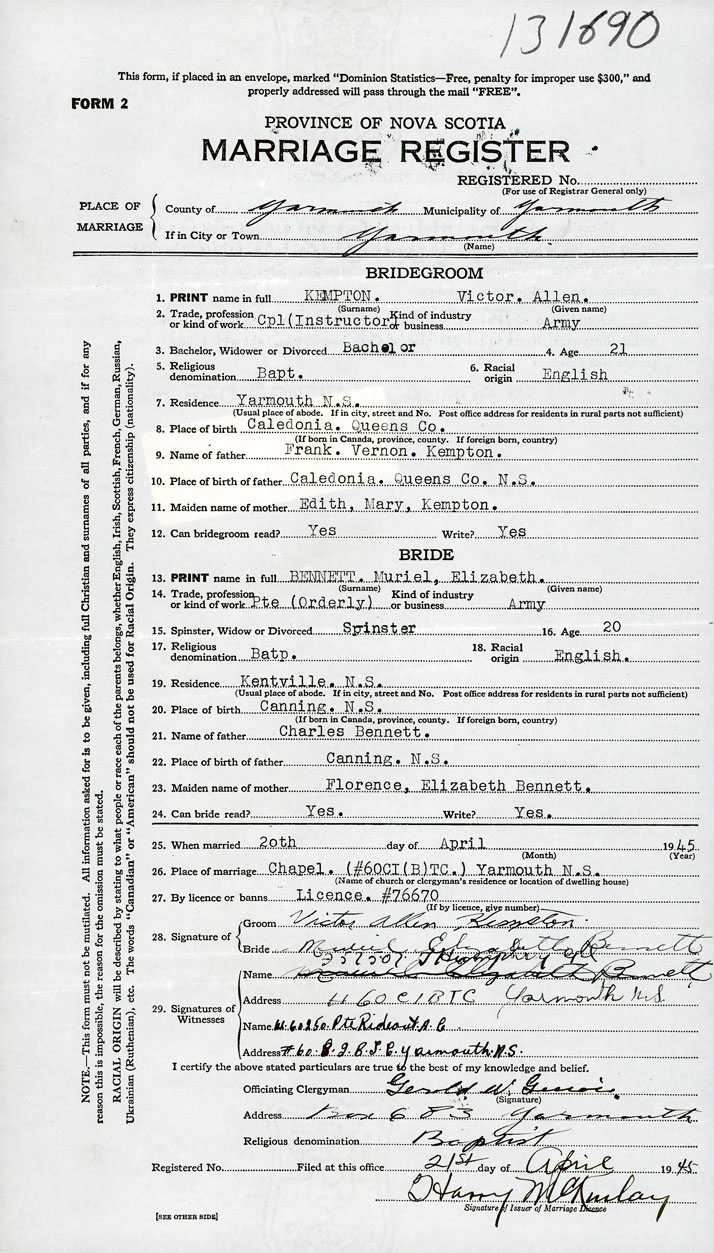 131690
This form, if placed in an envelope, marked "Dominion Statistics—Free, penalty for improper use $300," and
properly addressed will pass through the mail "FREE".
FORM 2
PROVINCE OF NOVA SCOTIA
MARRIAGE REGISTER
REGISTERED No.
(For use of Registrar General only)
PLACE OF MARRIAGE
County of Yarmouth Municipality of Yarmouth
If in City or Town Yarmouth
(Name)
BRIDEGROOM
1. PRINT name in full KEMPTON. Victor. Allen.
(Surname) (Given name)
2. Trade, profession or kind of work Cpl(Instructor) Kind of industry or business Army
3. Bachelor, Widower or Divorced Bachelor 4. Age 21
5. Religious denomination Bapt. 6. Racial origin English
7. Residence Yarmouth N.S.
(Usual place of abode. If in city, street and No. Post office address for residents in rural parts not sufficient)
8. Place of birth Caledonia. Queens Co.
(If born in Canada, province, county. If foreign born, country)
9. Name of father Frank. Vernon. Kempton.
10. Place of birth of father Caledonia. Queens Co. N.S.
11. Maiden name of mother Edith, Mary, Kempton.
12. Can bridegroom read? Yes Write? Yes
BRIDE
13. PRINT name in full BENNETT. Muriel, Elizabeth.
(Surname) (Given name)
14. Trade, profession or kind of work Pte (Orderly) Kind of industry or business Army
15. Spinster, Widow or Divorced Spinster 16. Age 20
17. Religious denomination Batp. 18. Racial origin English.
19. Residence Kentville. N.S.
(Usual place of abode. If in city, street and No. Post office address for residents in rural parts not sufficient)
20. Place of birth Canning. N.S.
(If born in Canada, province, county. If foreign born, country)
21. Name of father Charles Bennett.
22. Place of birth of father Canning. N.S.
23. Maiden name of mother Florence, Elizabeth Bennett.
24. Can bride read? Yes. Write? Yes.
25. When married 20th day of April 1945
(Month) (Year)
26. Place of marriage Chapel. (#60CI(B)TC.) Yarmouth N.S.
(Name of church or clergyman's residence or location of dwelling house)
27. By licence or banns Licence. #76670
(If by licence, give number)
28. Signature of
Groom Victor Allen Kempton
Bride Muriel Elizabeth Bennett
29. Signatures of Witnesses
Name Elizabeth Bennett
Address #60 CIBTC Yarmouth N.S.
Name Pte Rideout
Address #60 Yarmouth. N.S.
I certify the above stated particulars are true to the best of my knowledge and belief.
Officiating Clergyman Gerald W.
(Signature)
Address Box 683 Yarmouth
Religious denomination Baptist
Registered No. Filed at this office 21st day of April 1945
Harry McKinlay
Signature of Issuer of Marriage Licence
[SEE OTHER SIDE]
NOTE.—This form must not be mutilated. All information asked for is to be given, including full Christian and surnames of all parties, and if for any
reason this is impossible, the reason for the omission must be stated.
RACIAL ORIGIN will be described by stating to what people or race each of the parents belongs, whether English, Irish, Scottish, French, German, Russian,
Ukrainian (Ruthenian), etc. The words "Canadian" or "American" should not be used for Racial Origin. They express citizenship (nationality).